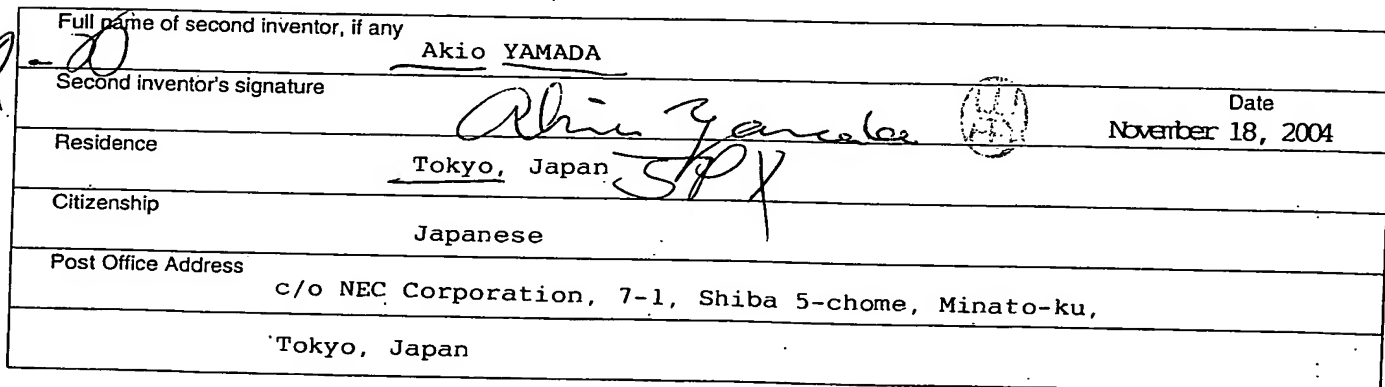 Full name of second inventor, if any
Akio YAMADA
Second inventor's signature
Akio Yamada
Date
November 18, 2004
Residence
Tokyo, Japan JPX
Citizenship
Japanese
Post Office Address
c/o NEC Corporation, 7-1, Shiba 5-chome, Minato-ku,
Tokyo, Japan